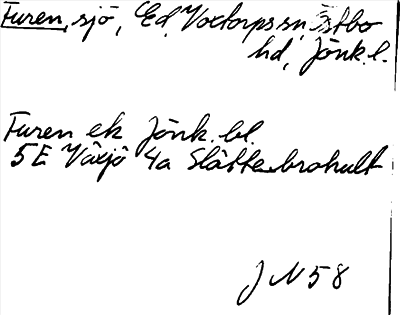 Furen, sjö, Ed, Voxtorps sn, Östbo
hd, Jönk. l.
Furen ek Jönk. bl.
5E Växjö 4a Slättenbrohult
J N 58